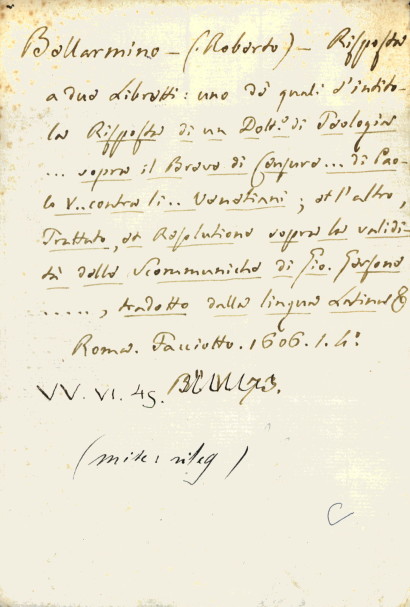 Bellarmino - (Roberto) - Risposta
a due Libretti: uno de quali s'intito-
la Risposta di un Dott.e di Teologia
... sopra il Breve di Censure ... di Pao-
lo V.. contra li .. Venetiani; et l'altro,
Trattato, et Resolutione sopra la validi-
tà delle Scommuniche di Gio. Gersone
....., tradotto dalla lingua Latina &
Roma. Facciotto. 1606. 1. 4.°
VV. VI. 45.
(misc: rileg)
C